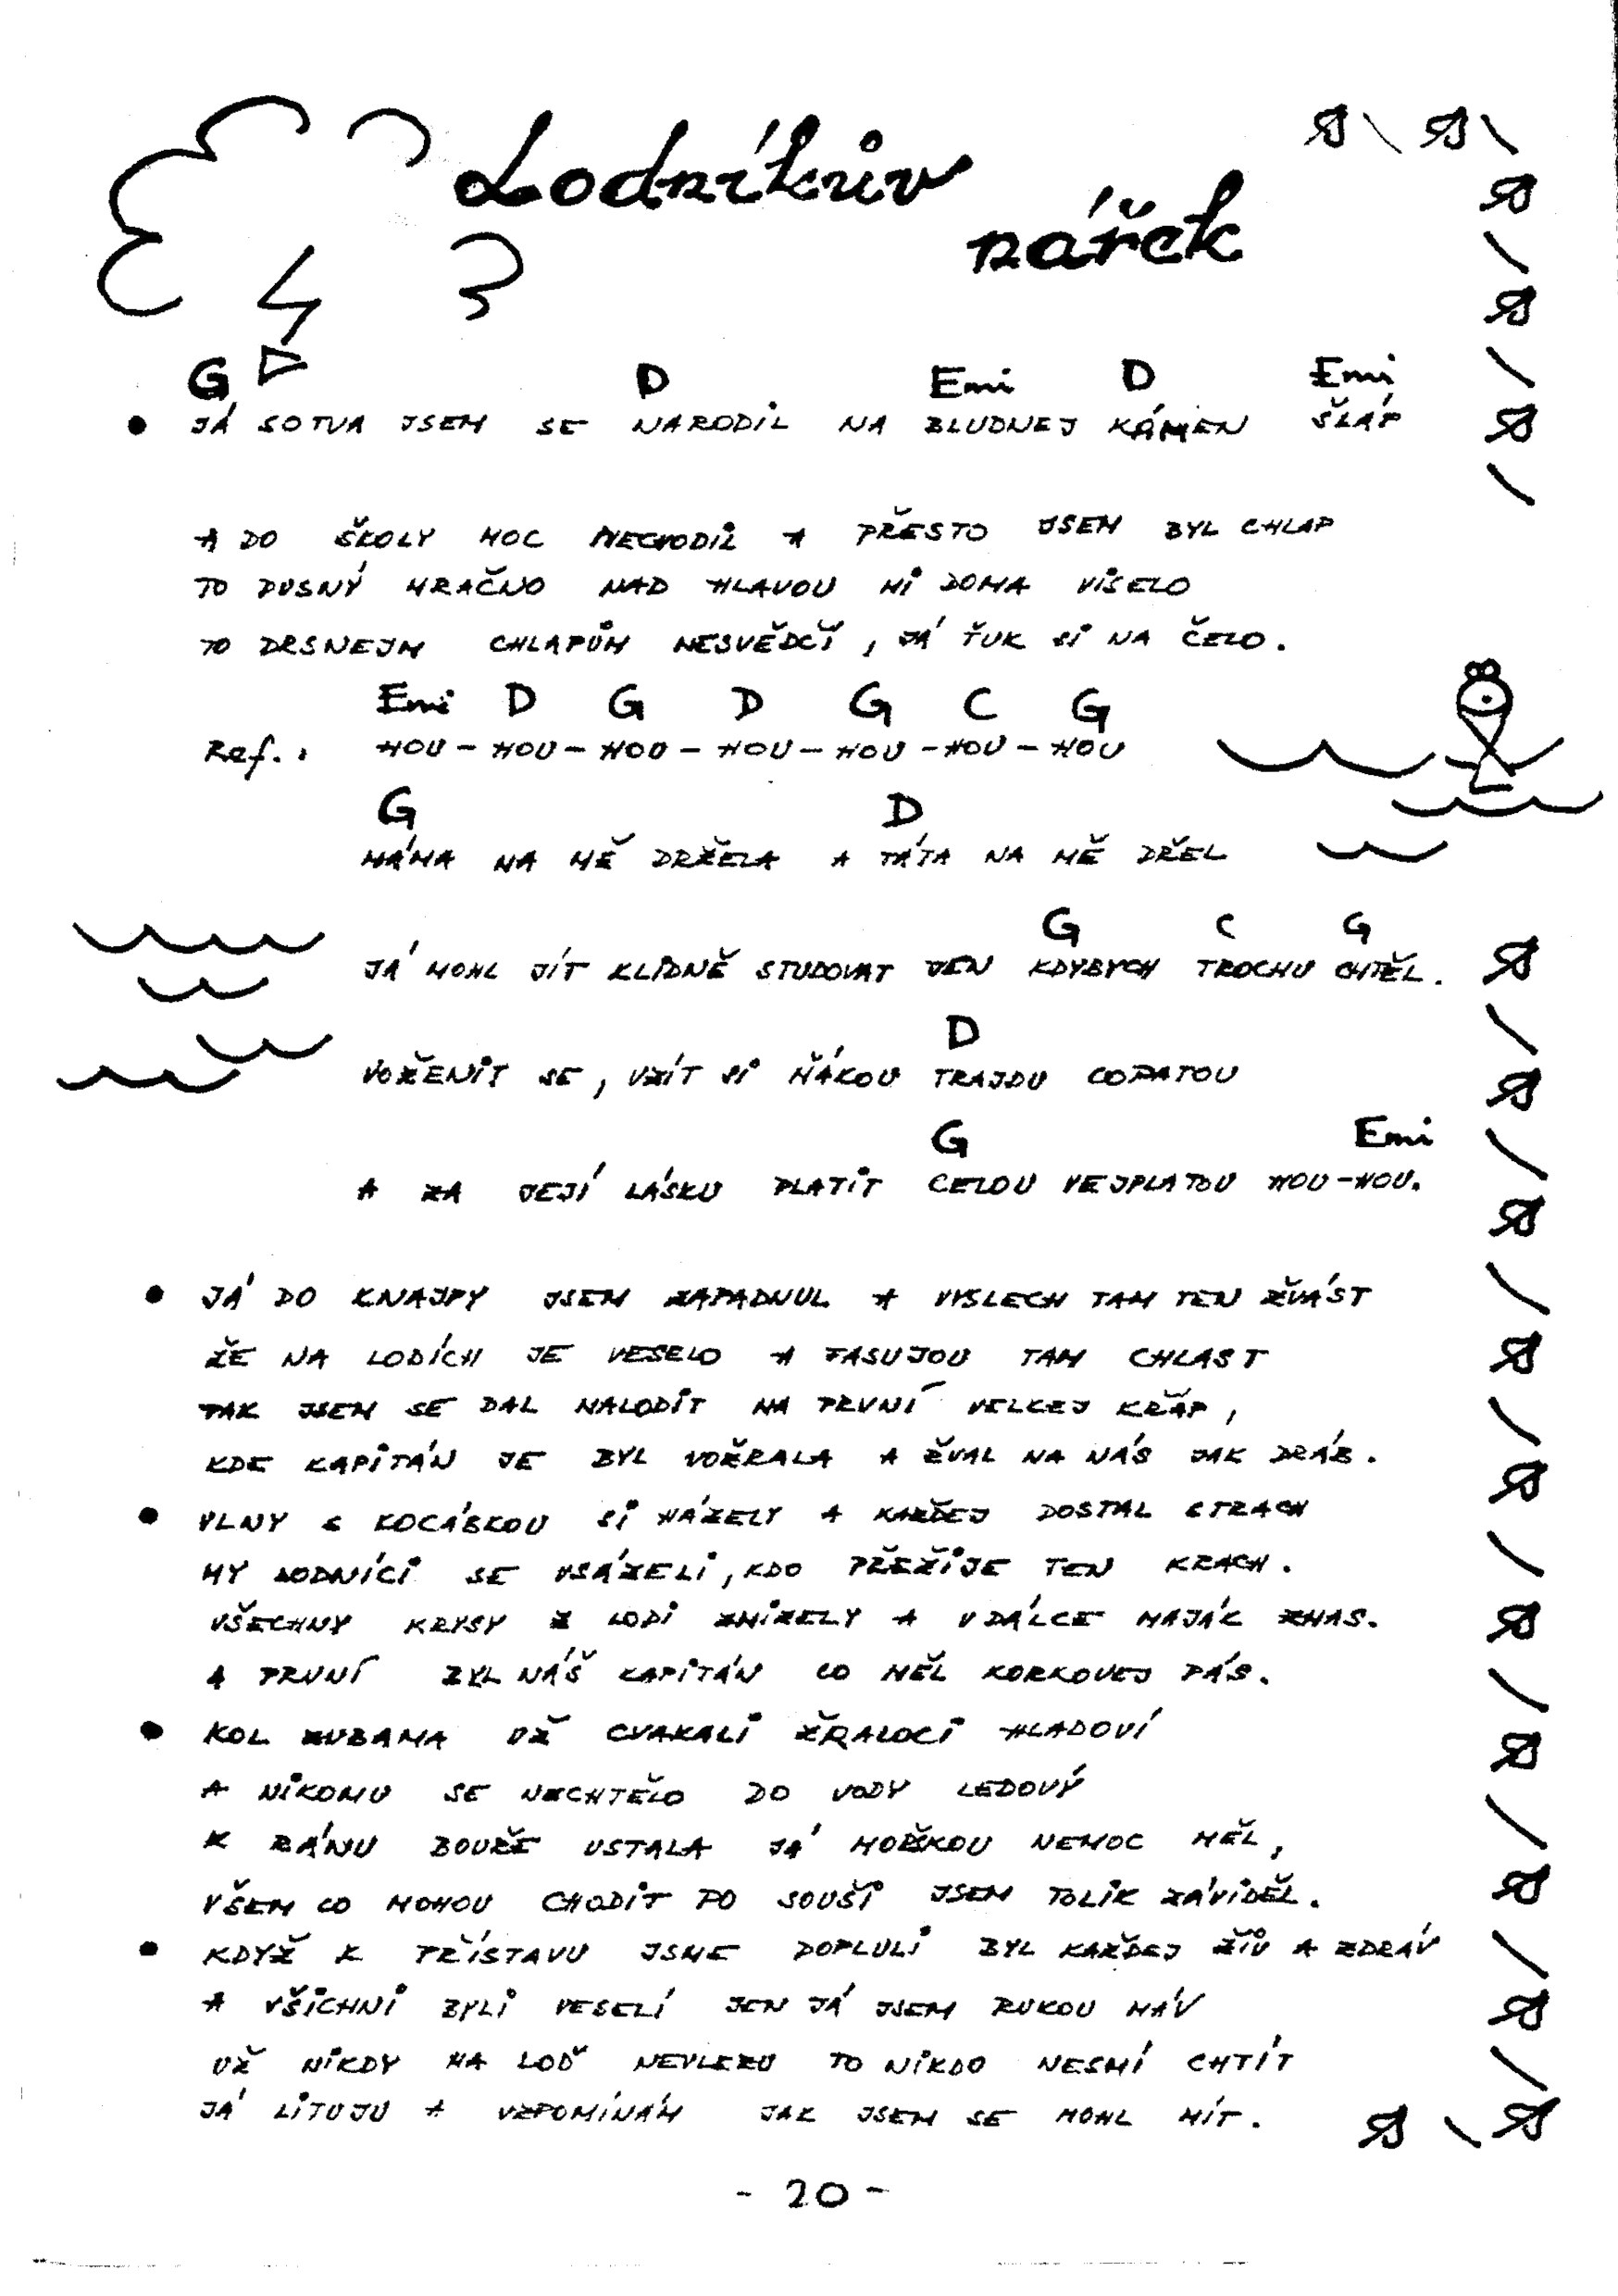 Lodníkův
nářek
G D Emi D Emi
• JÁ SOTVA JSEM SE NARODIL NA BLUDNEJ KÁMEN ŠLÁP
A DO ŠKOLY MOC NECHODIL A PŘESTO JSEM BYL CHLAP
TO DUSNÝ MRAČNO NAD HLAVOU MI DOMA VISELO
TO DRSNEJM CHLAPŮM NESVĚDČÍ, JÁ ŤUK SI NA ČELO.
Emi D G D G C G
Ref.: HOU - HOU - HOU - HOU - HOU - HOU - HOU
G D
MÁMA NA MĚ DRŽELA A TÁTA NA MĚ DŘEL
G C G
JÁ MOHL JÍT KLIDNĚ STUDOVAT JEN KDYBYCH TROCHU CHTĚL.
D
VOŽENIT SE, VZÍT SI ŇÁKOU TRAJDU COPATOU
G Emi
A ZA JEJÍ LÁSKU PLATIT CELOU VEJPLATOU HOU-HOU.
• JÁ DO KNAJPY JSEM ZAPADNUL A VYSLECH TAM TEN ŽVÁST
ŽE NA LODÍCH JE VESELO A FASUJOU TAM CHLAST
TAK JSEM SE DAL NALODIT NA PRVNÍ VELKEJ KŘÁP,
KDE KAPITÁN JE BYL VOŽRALA A ŘVAL NA NÁS JAK DRÁB.
• VLNY S KOCÁBKOU SI HÁZELY A KAŽDEJ DOSTAL STRACH
MY LODNÍCI SE VSÁZELI, KDO PŘEŽIJE TEN KRACH.
VŠECHNY KRYSY Z LODI ZMIZELY A V DÁLCE MAJÁK ZHAS.
A PRVNÍ BYL NÁŠ KAPITÁN CO MĚL KORKOVEJ PÁS.
• KOL ZUBAMA UŽ CVAKALI ŽRALOCI HLADOVÍ
A NIKOMU SE NECHTĚLO DO VODY LEDOVÝ
K RÁNU BOUŘE USTALA JÁ MOŘSKOU NEMOC MĚL,
VŠEM CO MOHOU CHODIT PO SOUŠI JSEM TOLIK ZÁVIDĚL.
• KDYŽ K PŘÍSTAVU JSME DOPLULI BYL KAŽDEJ ŽIV A ZDRÁV
A VŠICHNI BYLI VESELÍ JEN JÁ JSEM RUKOU MÁV
UŽ NIKDY NA LOĎ NEVLEZU TO NIKDO NESMÍ CHTÍT
JÁ LITUJU A VZPOMÍNÁM JAK JSEM SE MOHL MÍT.
- 20 -